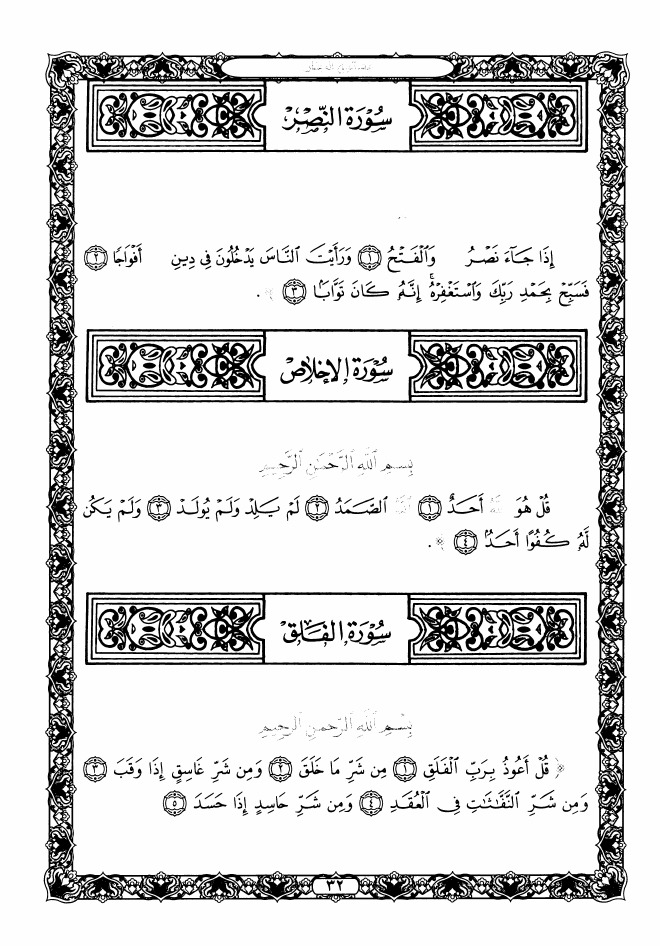 سُورَةُ النَّصْرِ
إِذَا جَآءَ نَصْرُ وَٱلْفَتْحُ ١ وَرَأَيْتَ ٱلنَّاسَ يَدْخُلُونَ فِى دِينِ أَفْوَاجًا ٢
فَسَبِّحْ بِحَمْدِ رَبِّكَ وَٱسْتَغْفِرْهُ ۚ إِنَّهُۥ كَانَ تَوَّابًۢا ٣ .
سُورَةُ الإِخْلَاصِ
بِسْمِ ٱللَّهِ ٱلرَّحْمَٰنِ ٱلرَّحِيمِ
قُلْ هُوَ ٱللَّهُ أَحَدٌ ١ ٱللَّهُ ٱلصَّمَدُ ٢ لَمْ يَلِدْ وَلَمْ يُولَدْ ٣ وَلَمْ يَكُن
لَّهُۥ كُفُوًا أَحَدٌۢ ٤ .
سُورَةُ الْفَلَقِ
بِسْمِ ٱللَّهِ ٱلرَّحْمَٰنِ ٱلرَّحِيمِ
قُلْ أَعُوذُ بِرَبِّ ٱلْفَلَقِ ١ مِن شَرِّ مَا خَلَقَ ٢ وَمِن شَرِّ غَاسِقٍ إِذَا وَقَبَ ٣
وَمِن شَرِّ ٱلنَّفَّٰثَٰتِ فِى ٱلْعُقَدِ ٤ وَمِن شَرِّ حَاسِدٍ إِذَا حَسَدَ ٥
٣٢